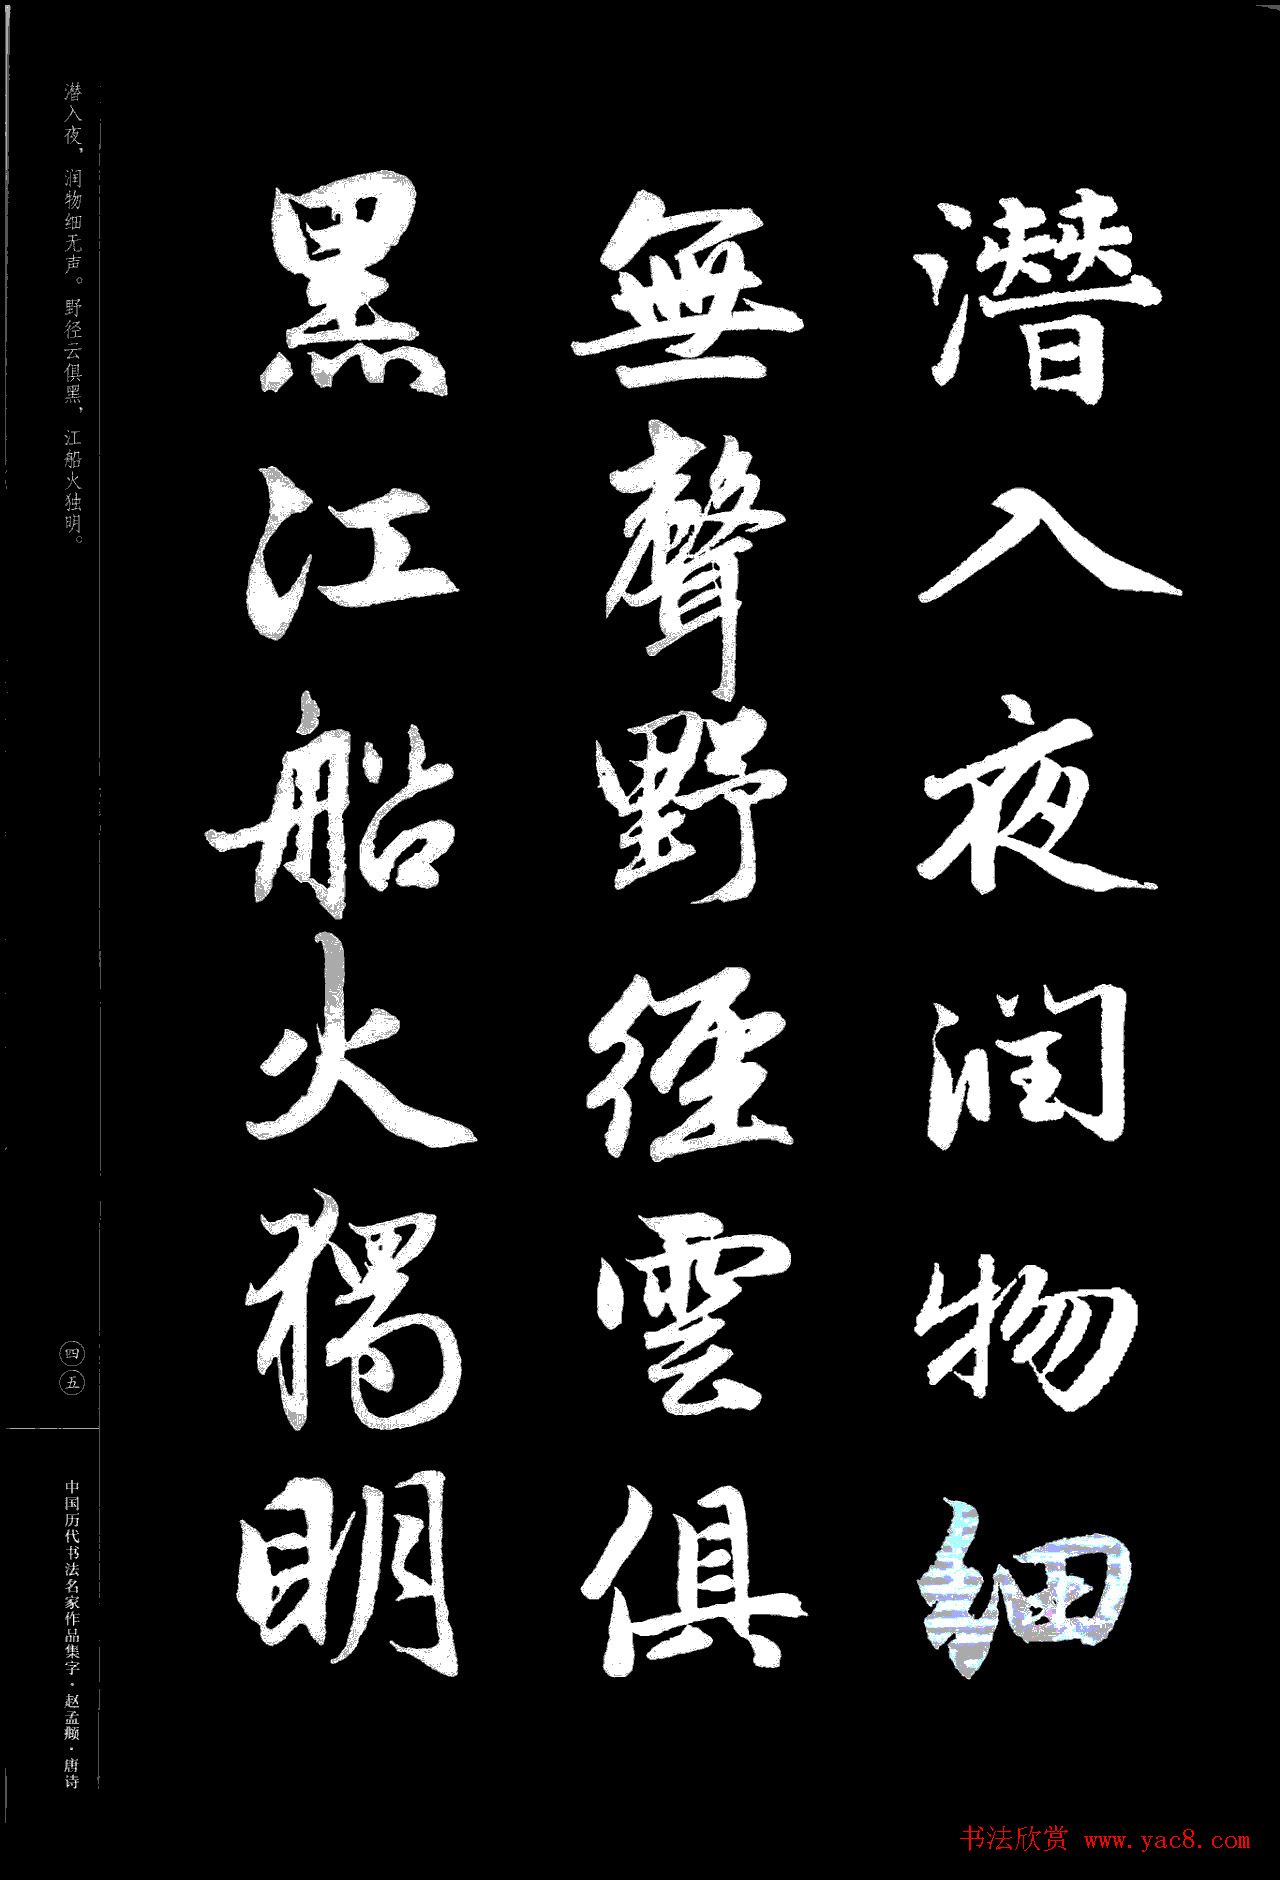 潛入夜润物細
無聲野徑雲俱
黑江船火獨明
潜入夜，润物细无声。野径云俱黑，江船火独明。
四五
中国历代书法名家作品集字·赵孟頫·唐诗
书法欣赏 www.yac8.com